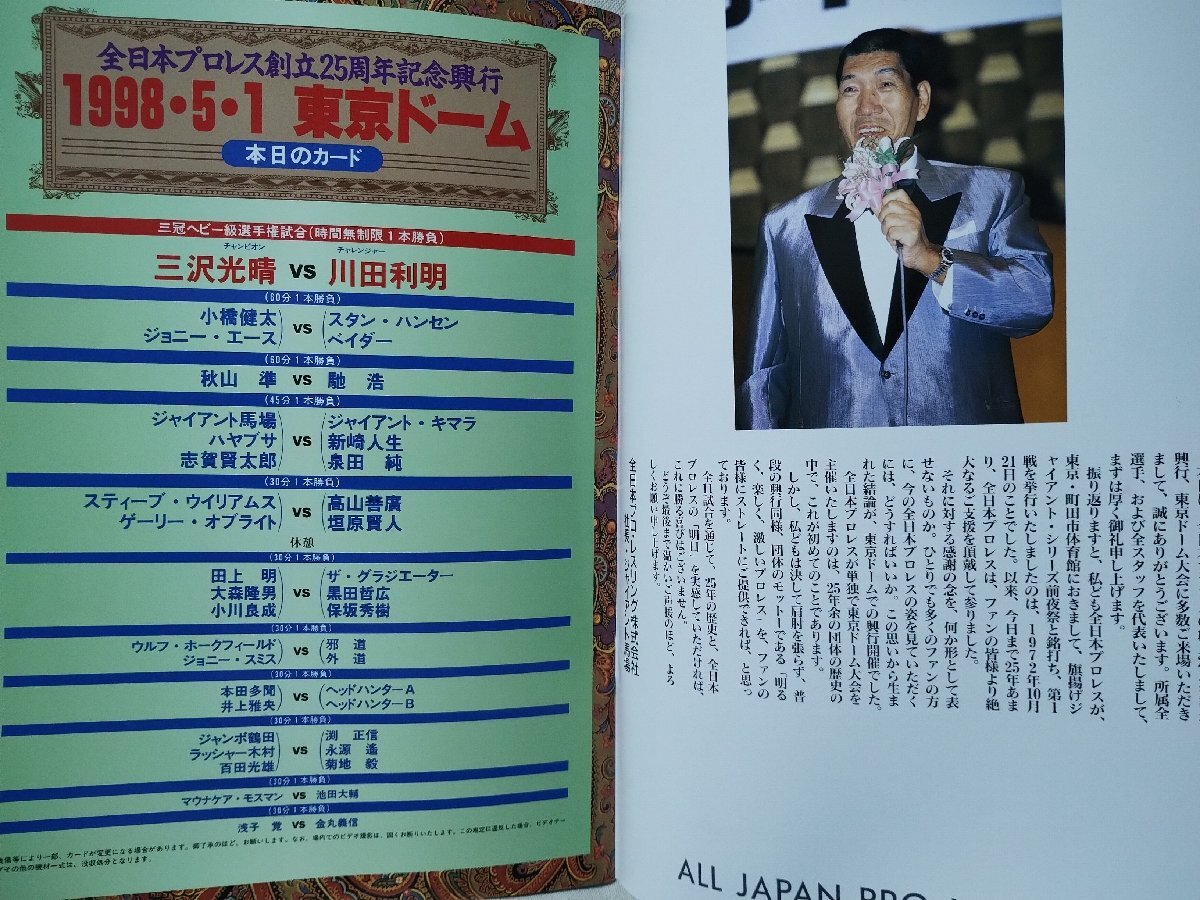 全日本プロレス創立25周年記念興行
1998・5・1 東京ドーム
本日のカード
三冠ヘビー級選手権試合(時間無制限1本勝負)
チャンピオン チャレンジャー
三沢光晴 vs 川田利明
(60分1本勝負)
小橋健太 スタン・ハンセン
vs
ジョニー・エース ベイダー
(60分1本勝負)
秋山 準 vs 馳 浩
(45分1本勝負)
ジャイアント馬場 ジャイアント・キマラ
ハヤブサ vs 新崎人生
志賀賢太郎 泉田 純
(30分1本勝負)
スティーブ・ウイリアムス 高山善廣
vs
ゲーリー・オブライト 垣原賢人
休憩
(30分1本勝負)
田上 明 ザ・グラジエーター
大森隆男 vs 黒田哲広
小川良成 保坂秀樹
(30分1本勝負)
ウルフ・ホークフィールド 邪 道
vs
ジョニー・スミス 外 道
(30分1本勝負)
本田多聞 ヘッドハンターA
vs
井上雅央 ヘッドハンターB
(30分1本勝負)
ジャンボ鶴田 渕 正信
ラッシャー木村 vs 永源 遙
百田光雄 菊地 毅
(30分1本勝負)
マウナケア・モスマン vs 池田大輔
(30分1本勝負)
浅子 覚 vs 金丸義信
備等により一部、カードが変更になる場合があります。御了承のほど、お願いします。なお、場内でのビデオ撮影は、固くお断りいたします。この規定に違反した場合、ビデオテー
プその他の機材一式は、没収処分となります。
興行、東京ドーム大会に多数ご来場いただき
まして、誠にありがとうございます。所属全
選手、および全スタッフを代表いたしまして、
まずは厚く御礼申し上げます。
振り返りますと、私ども全日本プロレスが、
東京・町田市体育館におきまして、旗揚げジ
ャイアント・シリーズ前夜祭と銘打ち、第1
戦を挙行いたしましたのは、1972年10月
21日のことでした。以来、今日まで25年あま
り、全日本プロレスは、ファンの皆様より絶
大なるご支援を頂戴して参りました。
それに対する感謝の念を、何か形として表
せないものか。ひとりでも多くのファンの方
に、今の全日本プロレスの姿を見ていただく
には、どうすればいいか。この思いから生ま
れた結論が、東京ドームでの興行開催でした。
全日本プロレスが単独で東京ドーム大会を
主催いたしますのは、25年余の団体の歴史の
中で、これが初めてのことであります。
しかし、私どもは決して肩肘を張らず、普
段の興行同様、団体のモットーである「明る
く、楽しく、激しいプロレス」を、ファンの
皆様にストレートにご提供できれば、と思っ
ております。
全試合を通じて、25年の歴史と、全日本
プロレスの「明日」を実感していただければ、
これに勝る喜びはございません。
どうぞ最後まで温かいご声援のほど、よろ
しくお願い申し上げます。
全日本プロ・レスリング株式会社
社長・ジャイアント馬場
ALL JAPAN PRO